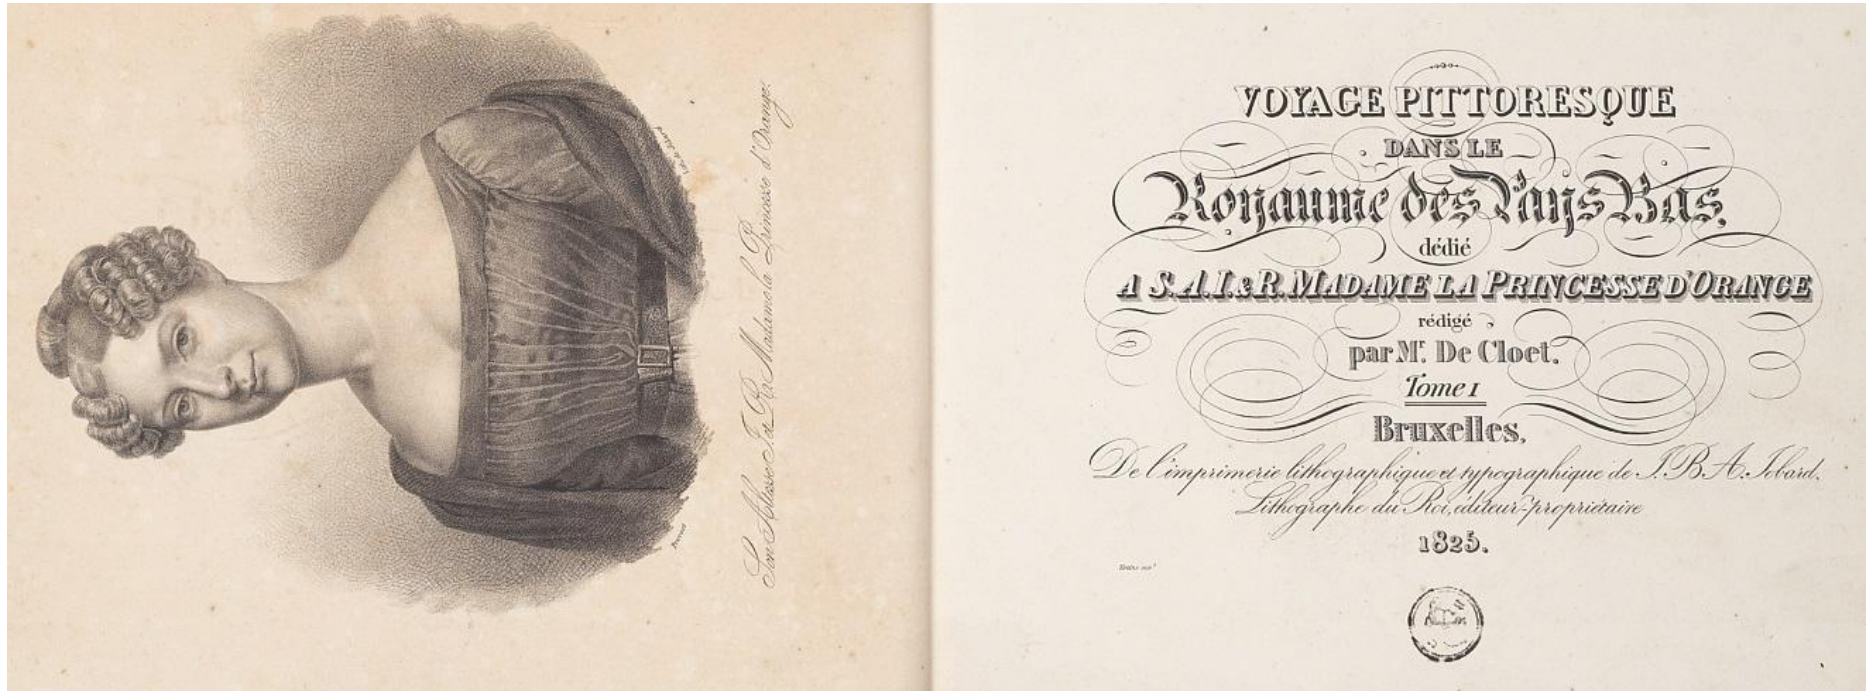 Son Altesse I. et R. Madame la Princesse d'Orange.
VOYAGE PITTORESQUE
DANS LE
Royaume des Pays Bas,
dédié
A S.A.I.&R. MADAME LA PRINCESSE D'ORANGE
rédigé
par Mr. De Cloet.
Tome 1
Bruxelles,
De l'imprimerie lithographique et typographique de J. B. A. Jobard.
Lithographe du Roi, éditeur-propriétaire
1825.